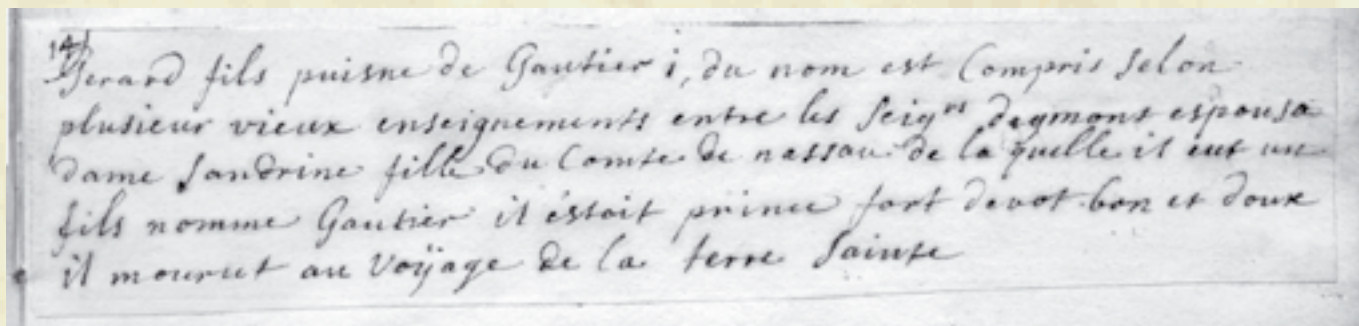 14
Gerard fils puisne de Gautier i, du nom est Compris selon
plusieur vieux enseignements entre les seigrs degmont espousa
dame Sandrine fille du Comte de nassau de la quelle il eut un
fils nomme Gautier il éstoit prince fort devot bon et doux
il mourut au Voÿage de la terre Sainte